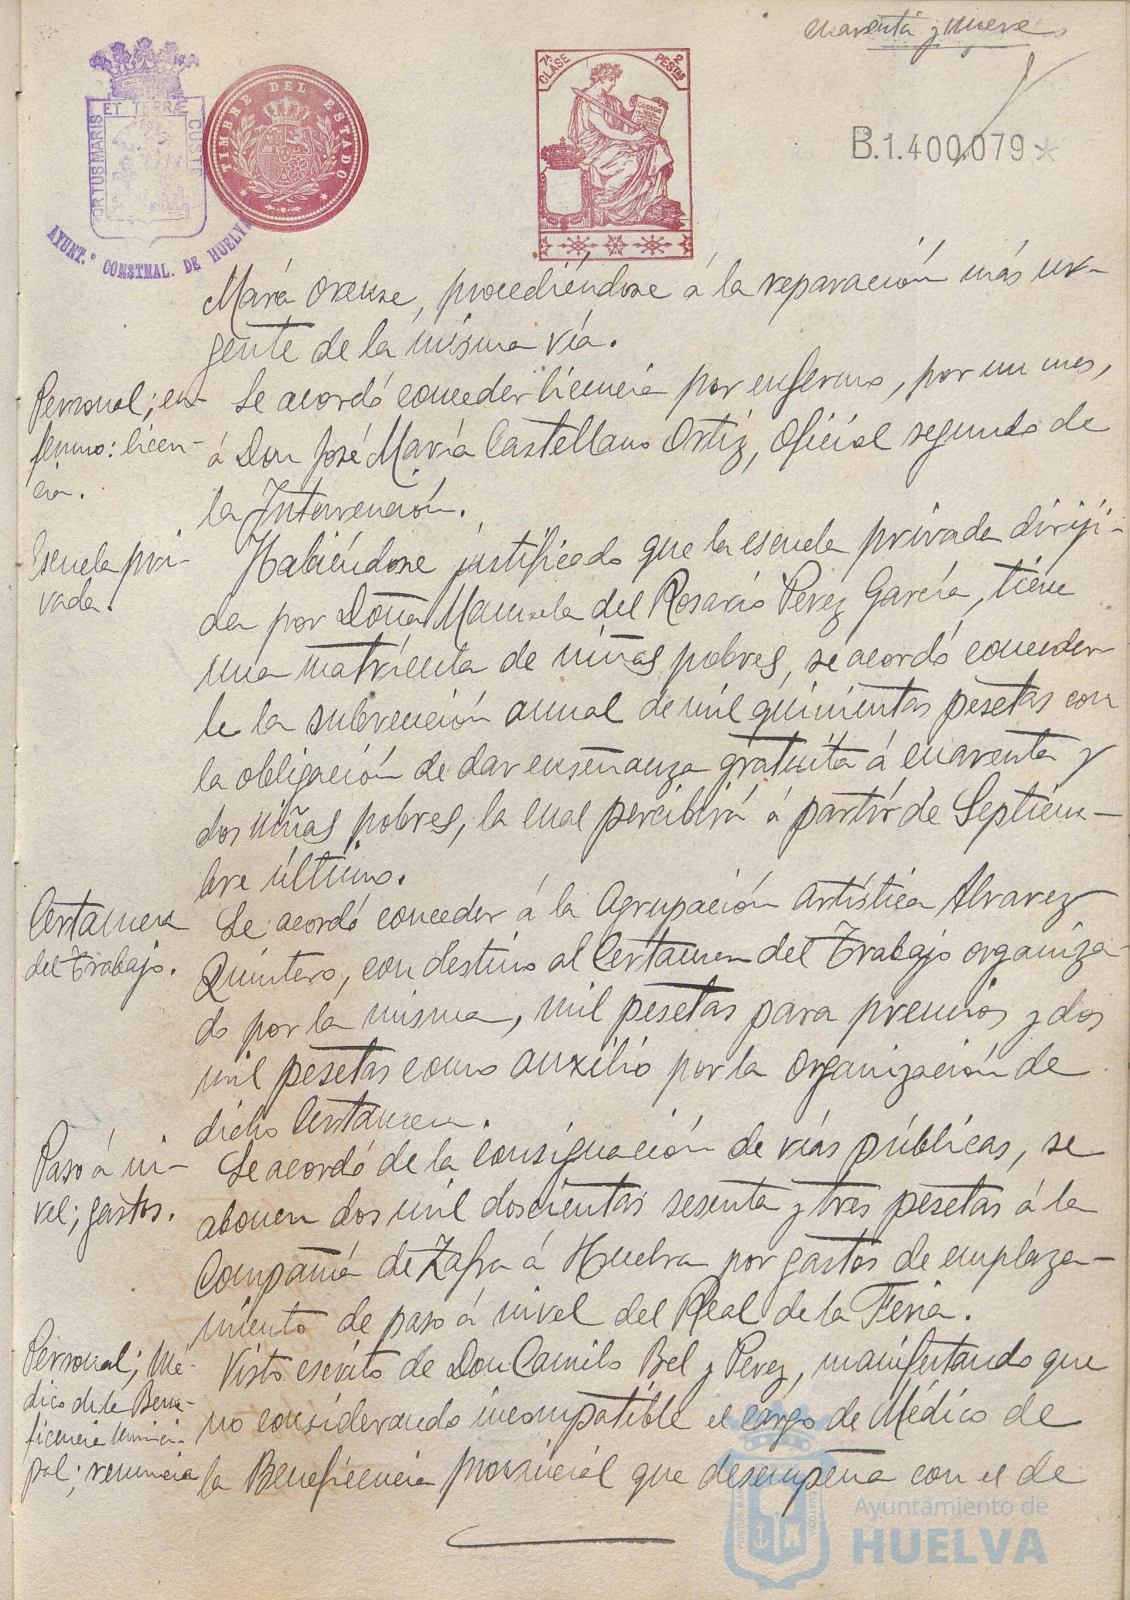 cuarenta y nueve
PORTUS MARIS ET TERRÆ CUSTO
AYUNT.º CONSTNAL. DE HUELVA
TIMBRE DEL ESTADO
7ª CLASE
2 PESTAS
CODIGO
B.1.400.079*
Mara Orense, procediéndose á la reparación más ur-
gente de la misma vía.
Personal; en-
fermo: licen-
cia.
Se acordó conceder licencia por enfermo, por un mes,
á Don José María Castellano Ortiz, Oficial segundo de
la Intervención.
Escuela pri-
vada.
Habiéndose justificado que la escuela privada dirigi-
da por Doña Manuela del Rosario Perez García, tiene
una matrícula de niñas pobres, se acordó conceder-
le la subvención anual de mil quinientas pesetas con
la obligación de dar enseñanza gratuita á cuarenta y
dos niñas pobres, la cual percibirá á partir de Septiem-
bre último.
Certamen
del Trabajo.
Se acordó conceder á la Agrupación Artística Alvarez
Quintero, con destino al Certamen del Trabajo organiza-
do por la misma, mil pesetas para premios y dos
mil pesetas como auxilio por la organización de
dicho Certamen.
Paso á ni-
vel; gastos.
Se acordó de la consignación de vías públicas, se
abonen dos mil doscientas sesenta y tres pesetas á la
Compañía de Zafra á Huelva por gastos de emplaza-
miento de paso á nivel del Real de la Feria.
Personal; Mé-
dico de la Bene-
ficencia munici-
pal; renuncia
Visto escrito de Don Camilo Bel y Perez, manifestando que
no considerando incompatible el cargo de Médico de
la Beneficencia provincial que desempeña con el de
Ayuntamiento de
HUELVA